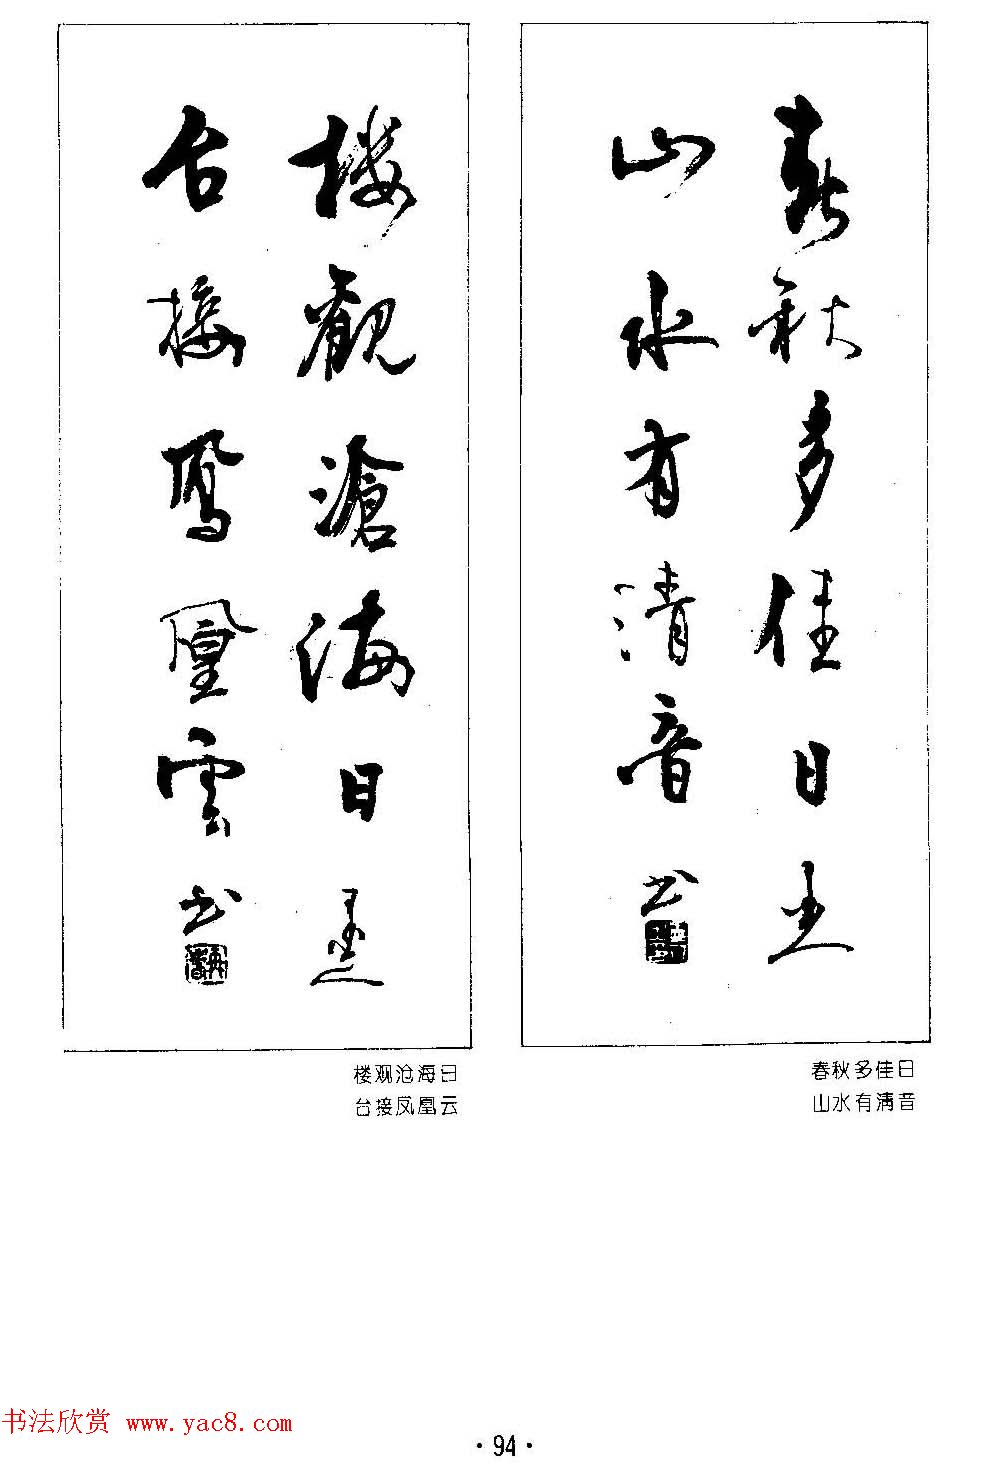 春秋多佳日
山水有清音 书
楼觀滄海日
台接鳳凰雲 书
春秋多佳日
山水有清音
楼观沧海日
台接凤凰云
书法欣赏 www.yac8.com
·94·